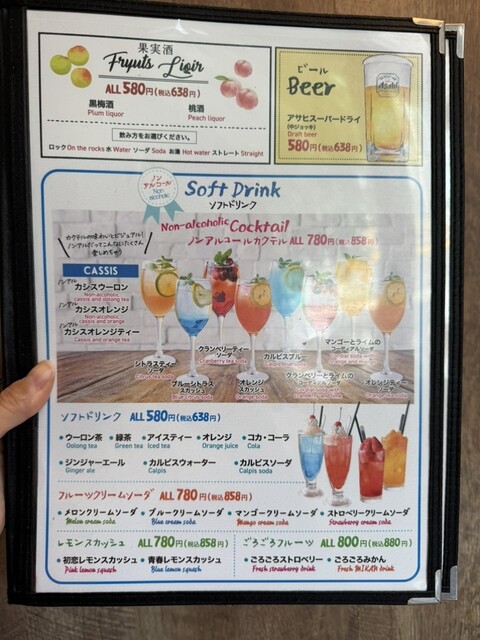 果実酒
Fryuts Liqir
ALL 580円(税込638円)
黒梅酒
Plum liquor
桃酒
Peach liquor
飲み方をお選びください。
ロック On the rocks 水 Water ソーダ Soda お湯 Hot water ストレート Straight
ビール
Beer
アサヒスーパードライ
(中ジョッキ)
Draft beer
580円(税込638円)
Asahi
ノン
アルコール
Non
alcoholic
Soft Drink
ソフトドリンク
Non-alcoholic Cocktail
ノンアルコールカクテル ALL 780円(税込858円)
カクテルの味わいとビジュアル!
ノンアルだってこんなにたくさん
楽しめちゃう
CASSIS
ノンアル カシスウーロン
Non-alcoholic
cassis and oolong tea
ノンアル カシスオレンジ
Non-alcoholic
cassis and orange
ノンアル カシスオレンジティー
Cassis and orange tea
シトラスティー
ソーダ
Citrus tea soda
ブルーシトラス
スカッシュ
Blue citrus soda
クランベリーティー
ソーダ
Cranberry tea soda
オレンジ
スカッシュ
Orange soda
カルピスブルー
クランベリーとライムの
コーディアルソーダ
マンゴーとライムの
コーディアルソーダ
オレンジティー
ソーダ
Orange tea soda
ソフトドリンク ALL 580円(税込638円)
・ウーロン茶 ・緑茶 ・アイスティー ・オレンジ ・コカ・コーラ
Oolong tea Green tea Iced tea Orange juice Cola
・ジンジャーエール ・カルピスウォーター ・カルピスソーダ
Ginger ale Calpis Calpis soda
フルーツクリームソーダ ALL 780円(税込858円)
・メロンクリームソーダ ・ブルークリームソーダ ・マンゴークリームソーダ ・ストロベリークリームソーダ
Melon cream soda Blue cream soda Mango cream soda Strawberry cream soda
レモンスカッシュ ALL 780円(税込858円)
・初恋レモンスカッシュ ・青春レモンスカッシュ
Pink lemon squash Blue lemon squash
ごろごろフルーツ ALL 800円(税込880円)
・ごろごろストロベリー ・ごろごろみかん
Fresh strawberry drink Fresh MIKAN drink